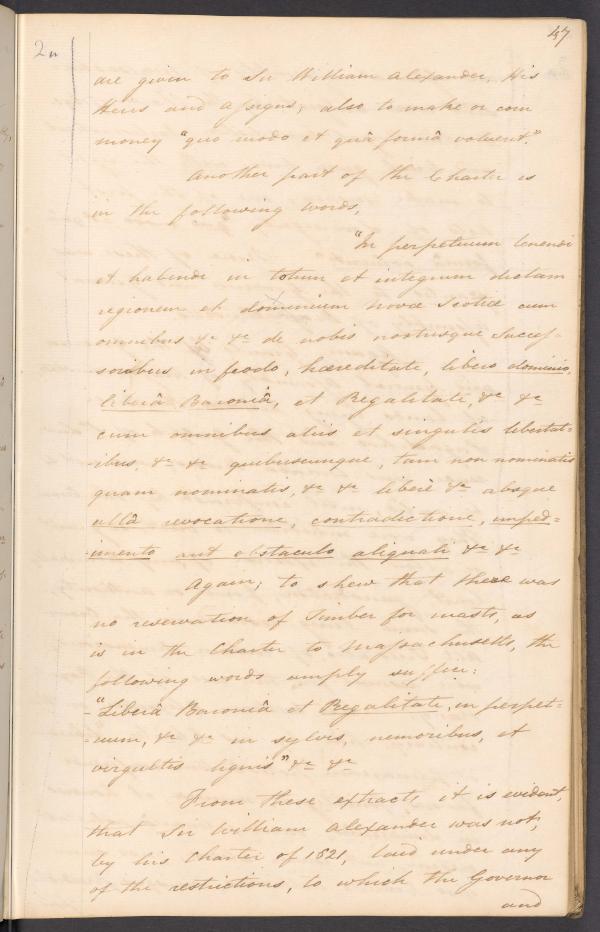 47
2n
are given to Sir William Alexander, His
Heirs and assigns, also to make or coin
money "quo modo et quâ formâ voluent."
Another part of the Charter is
in the following words,
"In perpetuum tenendi
et habendi in totum et integrum dictam
regionem et dominium Novæ Scotiæ cum
omnibus &c &c de nobis nostrisque Succes-
soribus in feodo, hæreditate, libero dominio,
liberâ Baroniâ, et Regalitate, &c &c
cum omnibus aliis et singulis libertat=
=ibus, &c &c quibuscunque, tam non nominatis
quam nominatis, &c &c liberè &c absque
ullâ revocatione, contradictione, imped=
=imento aut obstaculo aliquali &c &c
Again; to shew that there was
no reservation of Timber for masts, as
is in the Charter to Massachusetts, the
following words amply suffice:
-"Liberâ Baroniâ et Regalitate, in perpet=
=uum, &c &c in sylvis, nemoribus, et
virgultis lignis" &c &c
From these extracts it is evident,
that Sir William Alexander was not,
by his Charter of 1621, laid under any
of the restrictions, to which the Governor
and